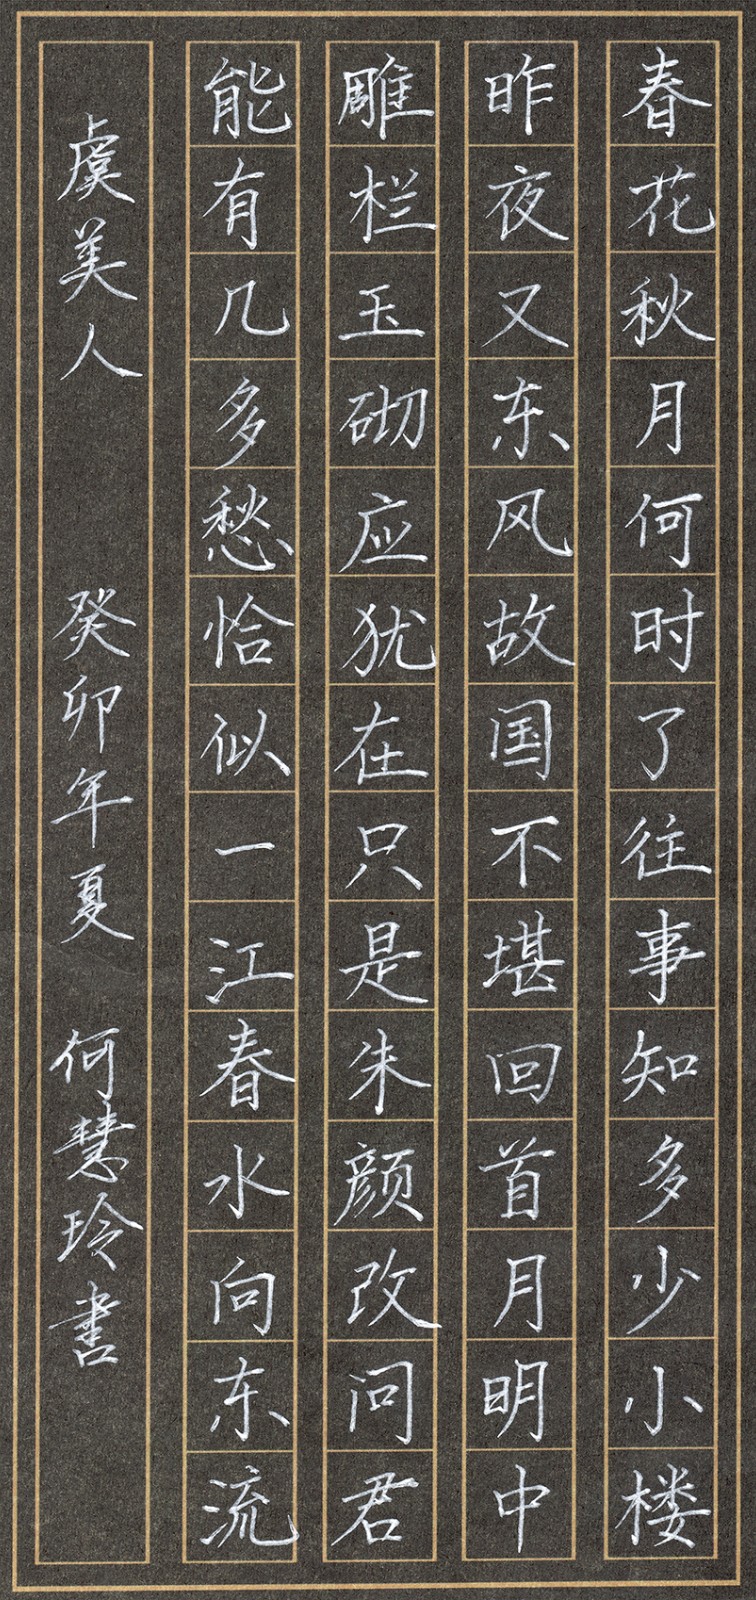 春花秋月何时了往事知多少小楼
昨夜又东风故国不堪回首月明中
雕栏玉砌应犹在只是朱颜改问君
能有几多愁恰似一江春水向东流
虞美人 癸卯年夏 何慧玲书